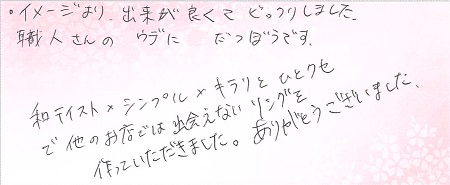 ・イメージより、出来が良くてビックリしました。
職人さんの ウデに だつぼうです。
和テイスト×シンプル×キラリとひとクセ
で他のお店では出会えないリングを
作っていただきました。ありがとうございました。